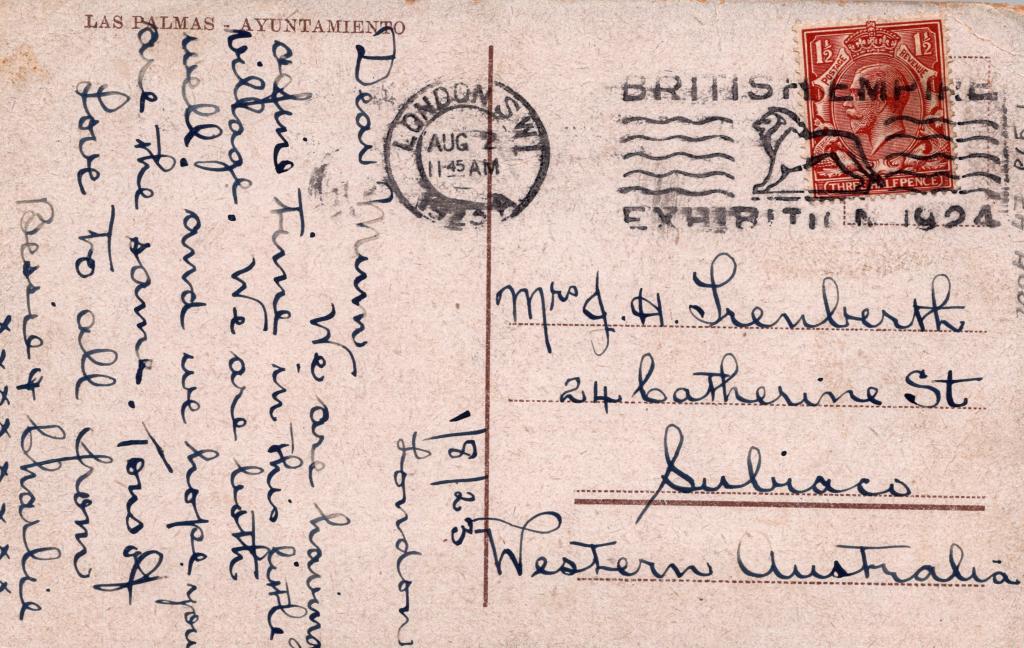 LAS PALMAS - AYUNTAMIENTO
London
1/8/23
Dear Mum
We are having
a fine time in this little
village. We are both
well, and we hope you
are the same. Tons of
Love to all from
Bessie & Charlie
x x x x x x x x
LONDON. S.W.1
AUG 2
11-45 AM
BRITISH EMPIRE
EXHIBITION 1924
1½ 1½
POSTAGE REVENUE
THREE HALFPENCE
Mrs J. H. Trenberth
24 Catherine St
Subiaco
Western Australia